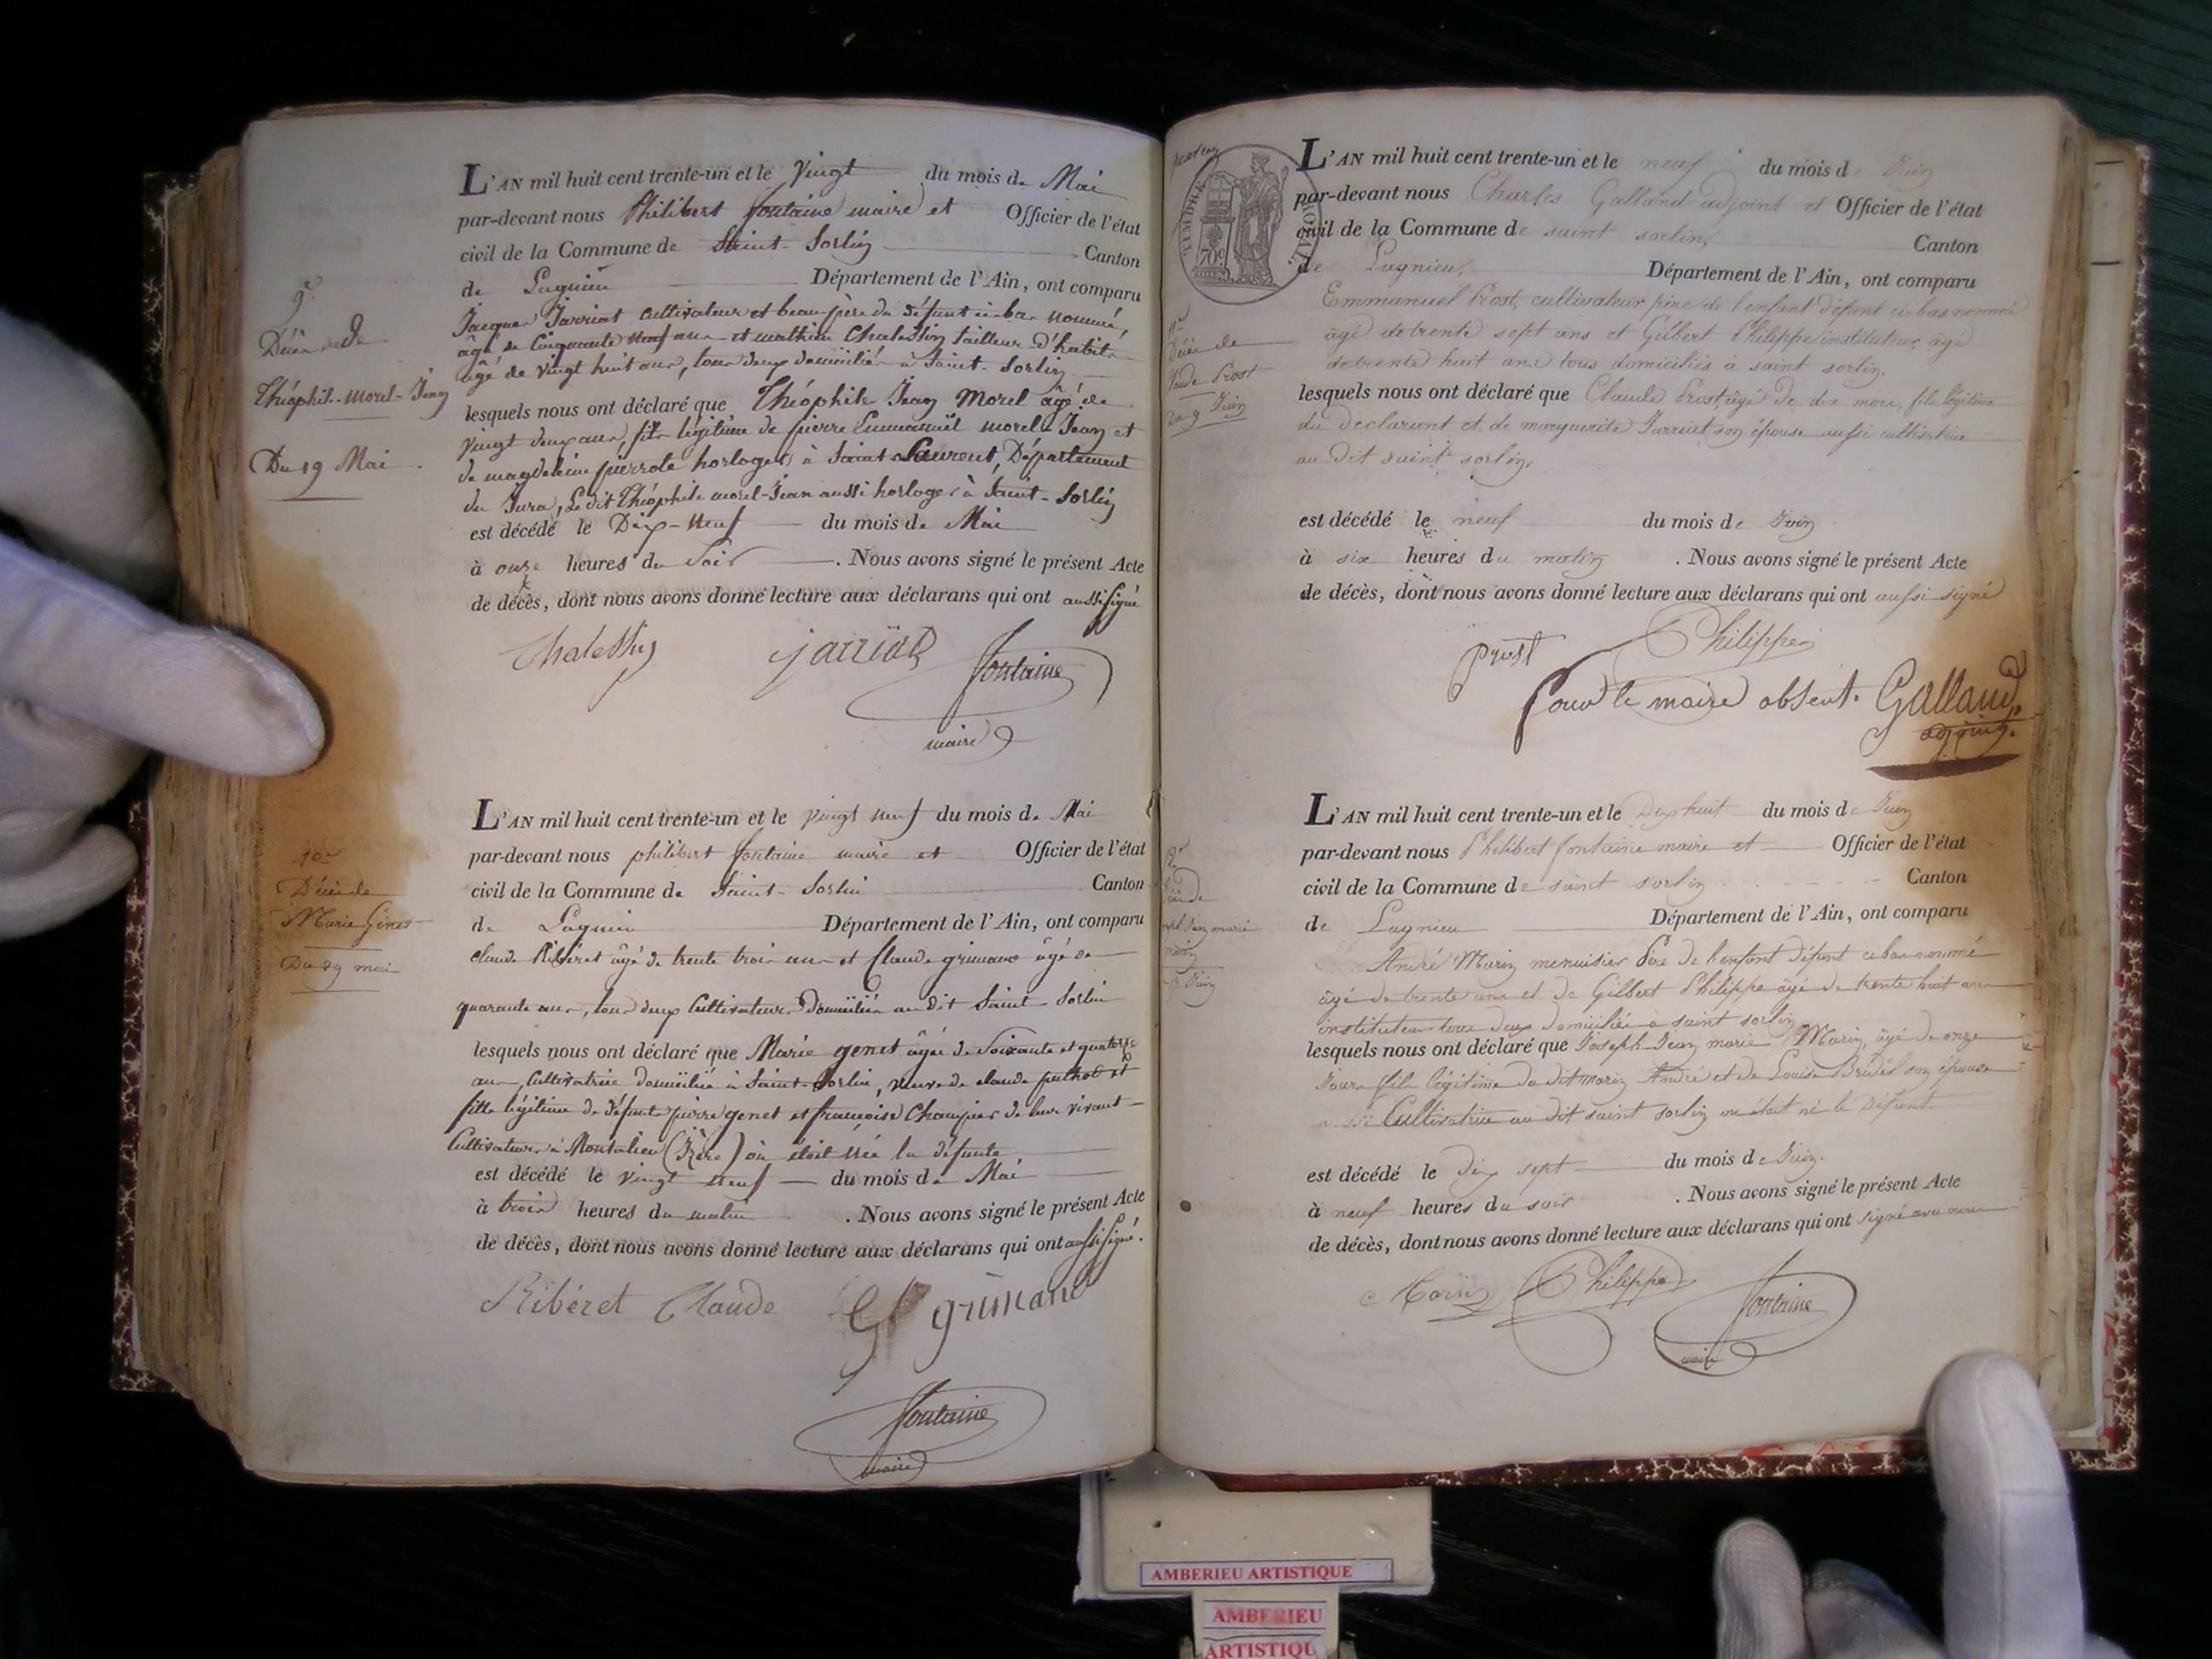 9e
Décès de
Théophile-morel-Jean
Du 19 Mai
L'AN mil huit cent trente-un et le Vingt du mois de Mai
par-devant nous Philibert fontaine maire et Officier de l'état
civil de la Commune de Saint-Sorlin Canton
de Lagnieu Département de l'Ain, ont comparu
Jacques Jarriat cultivateur et beau-père du défunt ci-bas nommé,
âgé de Cinquante neuf ans et mathieu Chalessin tailleur d'habits
âgé de vingt huit ans, tous deux domiciliés à Saint-Sorlin
lesquels nous ont déclaré que Théophile Jean Morel âgé de
vingt deux ans, fils légitime de pierre Emmanuël morel-Jean et
de magdeleine pierrote horlogers à Saint-Laurent, Département
du Jura, Ledit Théophile morel-Jean aussi horloger à Saint-Sorlin
est décédé le Dix-neuf du mois de Mai
à onze heures du Soir . Nous avons signé le présent Acte
de décès, dont nous avons donné lecture aux déclarans qui ont aussi signé
Chalessin jarriat fontaine
maire
10e
Décès de
Marie Genet
Du 29 mai
L'AN mil huit cent trente-un et le vingt neuf du mois de Mai
par-devant nous philibert fontaine maire et Officier de l'état
civil de la Commune de Saint-Sorlin Canton
de Lagnieu Département de l'Ain, ont comparu
claude Ribéret âgé de trente trois ans et Claude grimand âgé de
quarante ans, tous deux Cultivateurs Domiciliés au dit Saint-Sorlin
lesquels nous ont déclaré que Marie genet âgée de Soixante et quatorze
ans, Cultivatrice domiciliée à Saint-Sorlin, veuve de claude et
fille légitime de défunts pierre genet et françoise Champier de leur vivant
Cultivateurs à Montalieu (Isère) où étoit née la défunte
est décédé le vingt neuf du mois de Mai
à trois heures du matin . Nous avons signé le présent Acte
de décès, dont nous avons donné lecture aux déclarans qui ont aussi signé.
Ribéret Claude grimand
fontaine
maire
TIMBRE ROYAL
70c
11e
Décès de
Claude Prost
Du 9 Juin
L'AN mil huit cent trente-un et le neuf du mois de Juin
par-devant nous Charles Galland adjoint et Officier de l'état
civil de la Commune de saint sorlin, Canton
de Lagnieu, Département de l'Ain, ont comparu
Emmanuel Prost, cultivateur père de l'enfant défunt ci-bas nommé
âgé de trente sept ans et Gilbert Philippe instituteur, âgé
de trente huit ans tous domiciliés à saint sorlin.
lesquels nous ont déclaré que Claude Prost, âgé de dix mois, fils légitime
du déclarant et de marguerite Jarriat son épouse aussi cultivatrice
au dit saint sorlin,
est décédé le neuf du mois de Juin
à six heures du matin . Nous avons signé le présent Acte
de décès, dont nous avons donné lecture aux déclarans qui ont aussi signé
prost Philippe
Pour le maire absent. Galland
adjoint.
Jean marie
Juin
L'AN mil huit cent trente-un et le Dix huit du mois de Juin
par-devant nous Philibert fontaine maire et Officier de l'état
civil de la Commune de saint sorlin Canton
de Lagnieu Département de l'Ain, ont comparu
André Marin menuisier Père de l'enfant défunt ci bas nommé
âgé de trente ans et de Gilbert Philippe âgé de trente huit ans
instituteur tous deux domiciliés à saint sorlin
lesquels nous ont déclaré que Joseph Jean marie Marin, âgé de onze
Jours fils légitime du dit marin André et de Louise Bridel son épouse
aussi Cultivatrice au dit saint sorlin où étoit né le Défunt.
est décédé le dix sept du mois de Juin.
à neuf heures du soir . Nous avons signé le présent Acte
de décès, dont nous avons donné lecture aux déclarans qui ont signé avec nous
Marin Philippe fontaine
maire
AMBERIEU ARTISTIQUE
AMBERIEU
ARTISTIQU